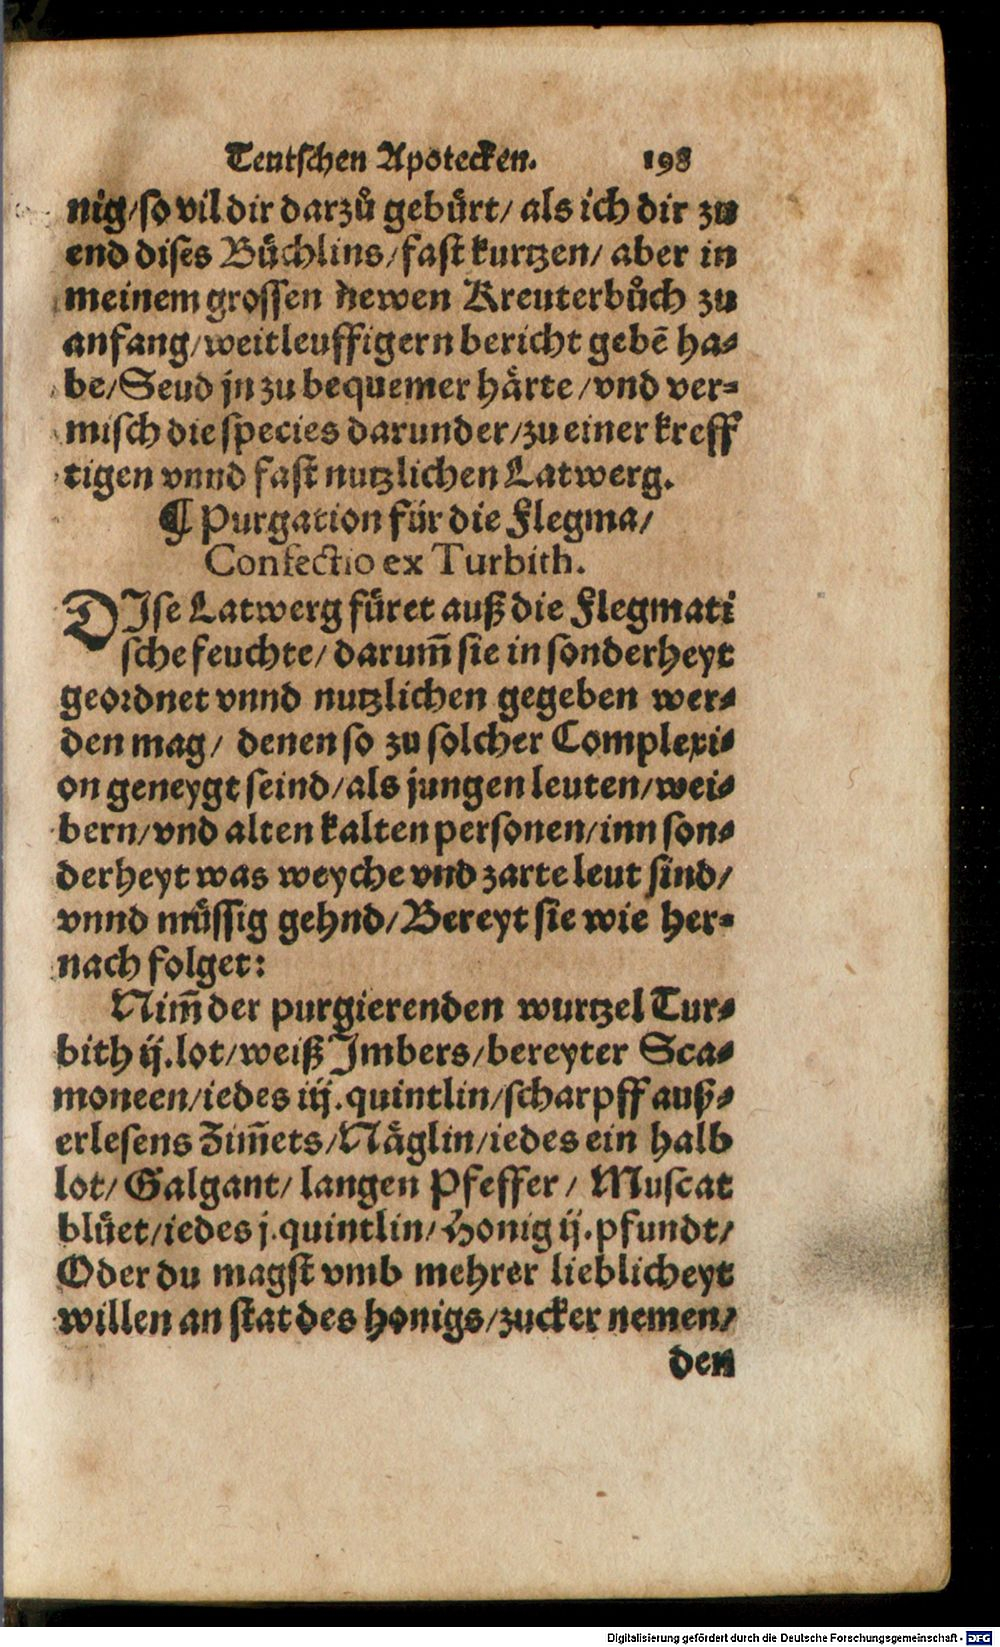 Teutschen Apotecken. 198
nig/so vil dir darzů gebürt/ als ich dir zu
end dises Büchlins/fast kurtzen/ aber in
meinem grossen newen Kreuterbůch zu
anfang/weitleuffigern bericht gebē ha⸗
be/Seud jn zu bequemer härte/vnd ver⸗
misch die species darunder/zu einer kreff
tigen vnnd fast nutzlichen Latwerg.
¶ Purgation für die Flegma/
Confectio ex Turbith.
DIse Latwerg füret auß die Flegmati
sche feuchte/ darum̄ sie in sonderheyt
geordnet vnnd nutzlichen gegeben wer⸗
den mag/ denen so zu solcher Complexi⸗
on geneygt seind/als jungen leuten/wei⸗
bern/vnd alten kalten personen/inn son⸗
derheyt was weyche vnd zarte leut sind/
vnnd müssig gehnd/Bereyt sie wie her⸗
nach folget:
Nim̄ der purgierenden wurtzel Tur⸗
bith ij.lot/weiß Jmbers/bereyter Sca⸗
moneen/iedes iij.quintlin/scharpff auß⸗
erlesens Zim̄ets/Näglin/iedes ein halb
lot/ Galgant/ langen Pfeffer/ Muscat
blüet/iedes j.quintlin/Honig ij.pfundt/
Oder du magst vmb mehrer lieblicheyt
willen an stat des honigs/zucker nemen/
den
Digitalisierung gefördert durch die Deutsche Forschungsgemeinschaft - DFG